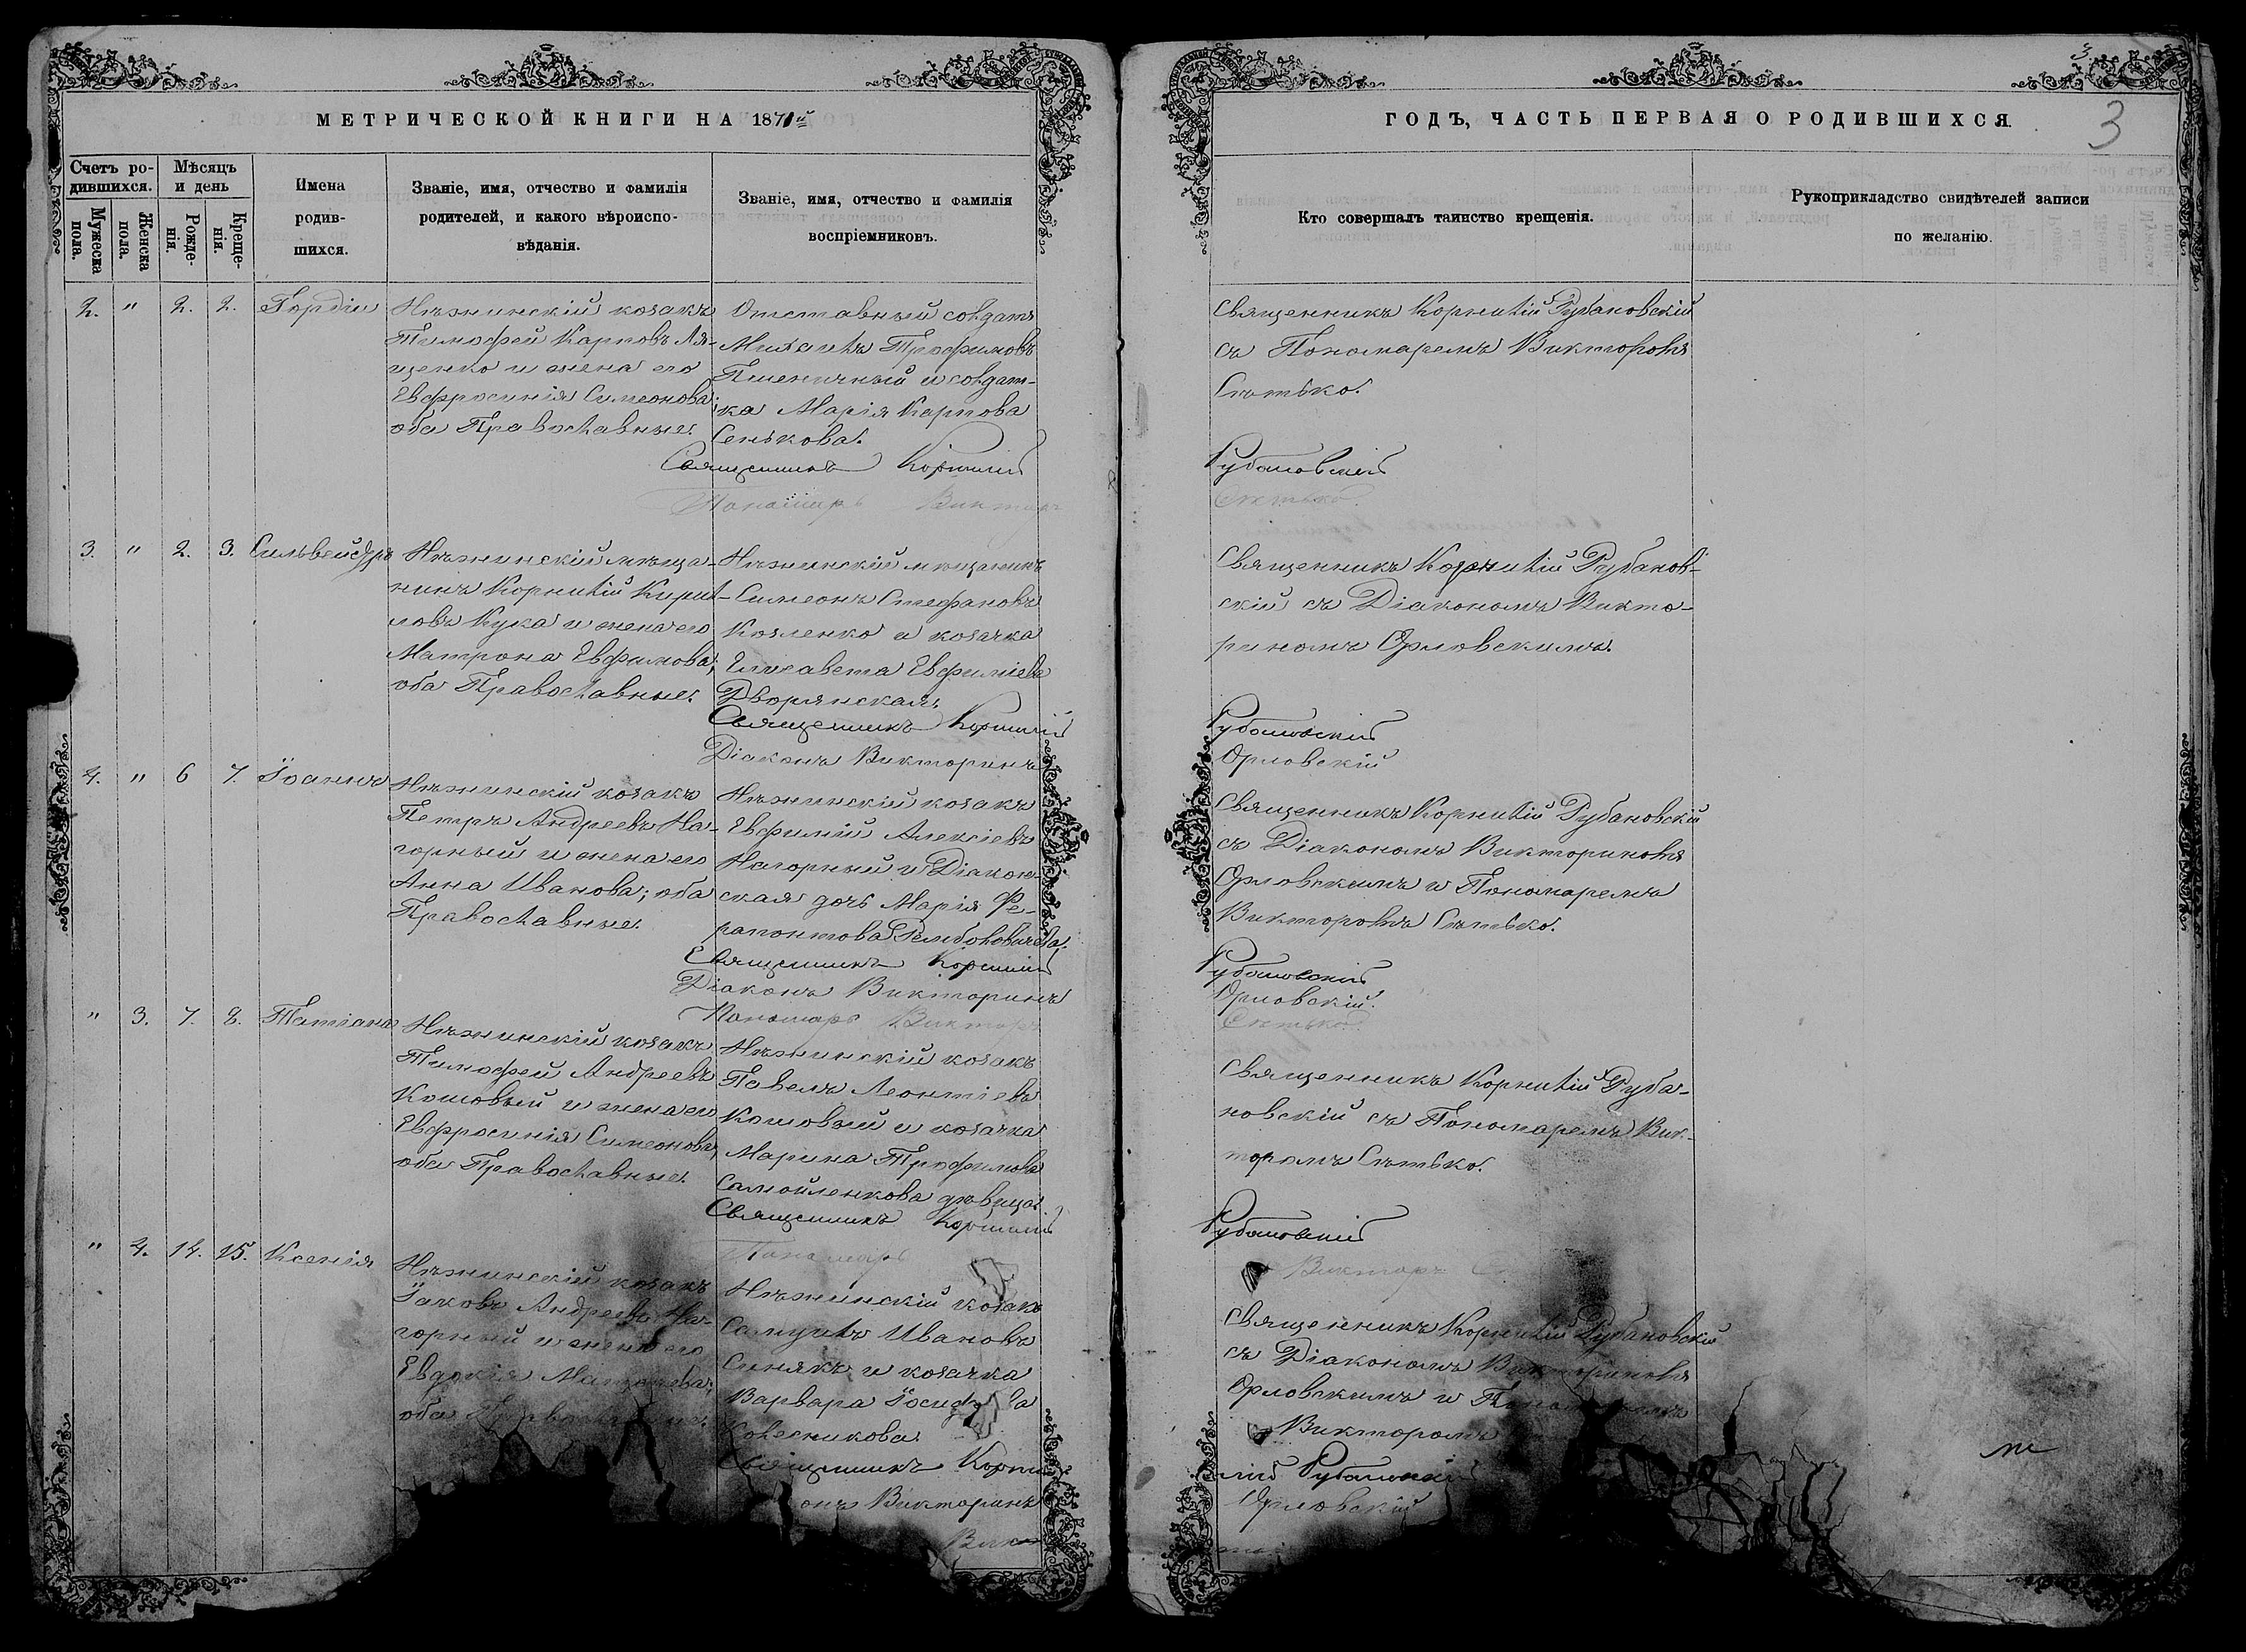 МЕТРИЧЕСКОЙ КНИГИ НА 1871й
Счетъ ро-
дившихся.
Мѣсяцъ
и день
Мужеска
пола.
Женска
пола.
Рожде-
нія.
Креще-
нія.
Имена
родив-
шихся.
Званіе, имя, отчество и фамилія
родителей, и какого вѣроиспо-
вѣданія.
Званіе, имя, отчество и фамилія
воспріемниковъ.
2. " 2. 2. Гордій
Нѣжинскій козакъ
Тимофей Карповъ Ля-
щенко и жена его
Евфросинія Симеонова;
оба Православные.
Отставный солдатъ
Михаилъ Трофимовъ
Пшеничный и солдат-
ка Марія Карпова
Сенькова.
Священникъ Корнилій
Пономарь Викторъ
3. " 2. 3. Сильвейстръ
Нѣжинскій мѣща-
нинъ Корнилій Кирил-
ловъ Кука и жена его
Матрона Евфимова,
оба Православные.
Нѣжинскій мѣщанинъ
Симеонъ Стефановъ
Козленко и козачка
Елисавета Евфиміева
Дворянская.
Священникъ Корнилій
Діаконъ Викторинъ
4. " 6 7. Іоаннъ
Нѣжинскій козакъ
Петръ Андреевъ На-
горный и жена его
Анна Иванова; оба
Православные.
Нѣжинскій козакъ
Евфимій Алексіевъ
Нагорный и Діакон-
ская дочь Марія Фе-
рапонтова
Священникъ Корнилій
Діаконъ Викторинъ
Пономарь Викторъ
" 3. 7. 8. Татіана
Нѣжинскій козакъ
Тимофей Андреевъ
Кошовый и жена его
Евфросинія Симеонова,
оба Православные.
Нѣжинскій козакъ
Павелъ Леонтіевъ
Кошовый и козачка
Марина Трофимова
Самойленкова дѣвица.
Священникъ Корнилій
Пономарь
" 4. 14. 15. Ксенія
Нѣжинскій козакъ
Іаковъ Андреевъ На-
горный и жена его
Евдокія
оба
Нѣжинскій козакъ
Самуилъ Ивановъ
Синякъ и козачка
Варвара
Колесникова.
Священникъ Корни
онъ Викторинъ
Вик
ГОДЪ, ЧАСТЬ ПЕРВАЯ О РОДИВШИХСЯ.
3
3
Кто совершалъ таинство крещенія.
Рукоприкладство свидѣтелей записи
по желанію.
Священникъ Корнилій Рубановскій
съ Пономаремъ Викторомъ
Сѣтько.
Рубановскій
Сѣтько
Священникъ Корнилій Рубанов-
скій съ Діакономъ Викто-
риномъ Орловскимъ.
Рубановскій
Орловскій
Священникъ Корнилій Рубановскій
съ Діакономъ Викториномъ
Орловскимъ и Пономаремъ
Викторомъ Сѣтько.
Рубановскій
Орловскій.
Сѣтько.
Священникъ Корнилій Руба-
новскій съ Пономаремъ Вик-
торомъ Сѣтько.
Рубановскій
Викторъ
Священникъ Корнилій Рубановскій
съ Діакономъ Викториномъ
Орловскимъ и
Викторомъ
лій Рубановскій
Орловскій